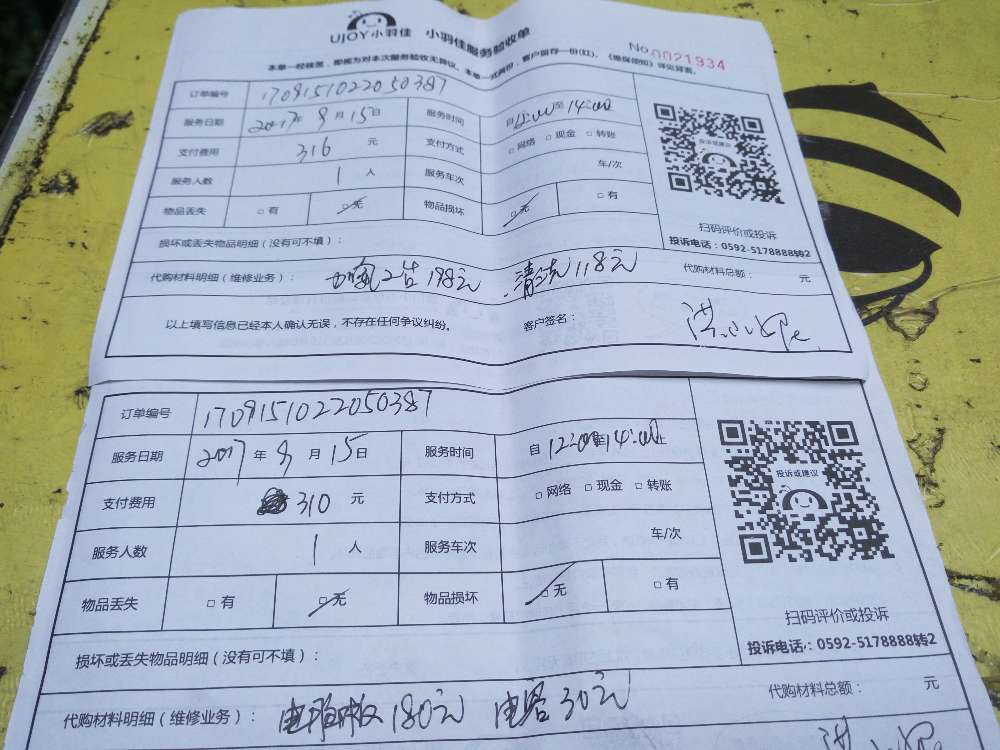 UJOY小羽佳 小羽佳服务验收单
No.0021934
本单一经核签，即视为对本次服务验收无异议。本单一式两份，客户留存一份(红)。《维保须知》详见背面。
订单编号 1709151022050387
服务日期 2017年9月15日 服务时间 自12:00至14:00
支付费用 316 元 支付方式 □网络 □现金 □转账
服务人数 1 人 服务车次 车/次
物品丢失 □有 □无 物品损坏 □无 □有
投诉或建议
扫码评价或投诉
投诉电话：0592-5178888转2
损坏或丢失物品明细（没有可不填）：
代购材料明细（维修业务）： 198元 清洗118元 代购材料总额： 元
以上填写信息已经本人确认无误，不存在任何争议纠纷。 客户签名：
订单编号 1709151022050387
服务日期 2017年9月15日 服务时间 自12:00至14:00止
支付费用 310 元 支付方式 □网络 □现金 □转账
服务人数 1 人 服务车次 车/次
物品丢失 □有 □无 物品损坏 □无 □有
投诉或建议
扫码评价或投诉
投诉电话：0592-5178888转2
损坏或丢失物品明细（没有可不填）：
代购材料明细（维修业务）： 180元 电容30元 代购材料总额： 元